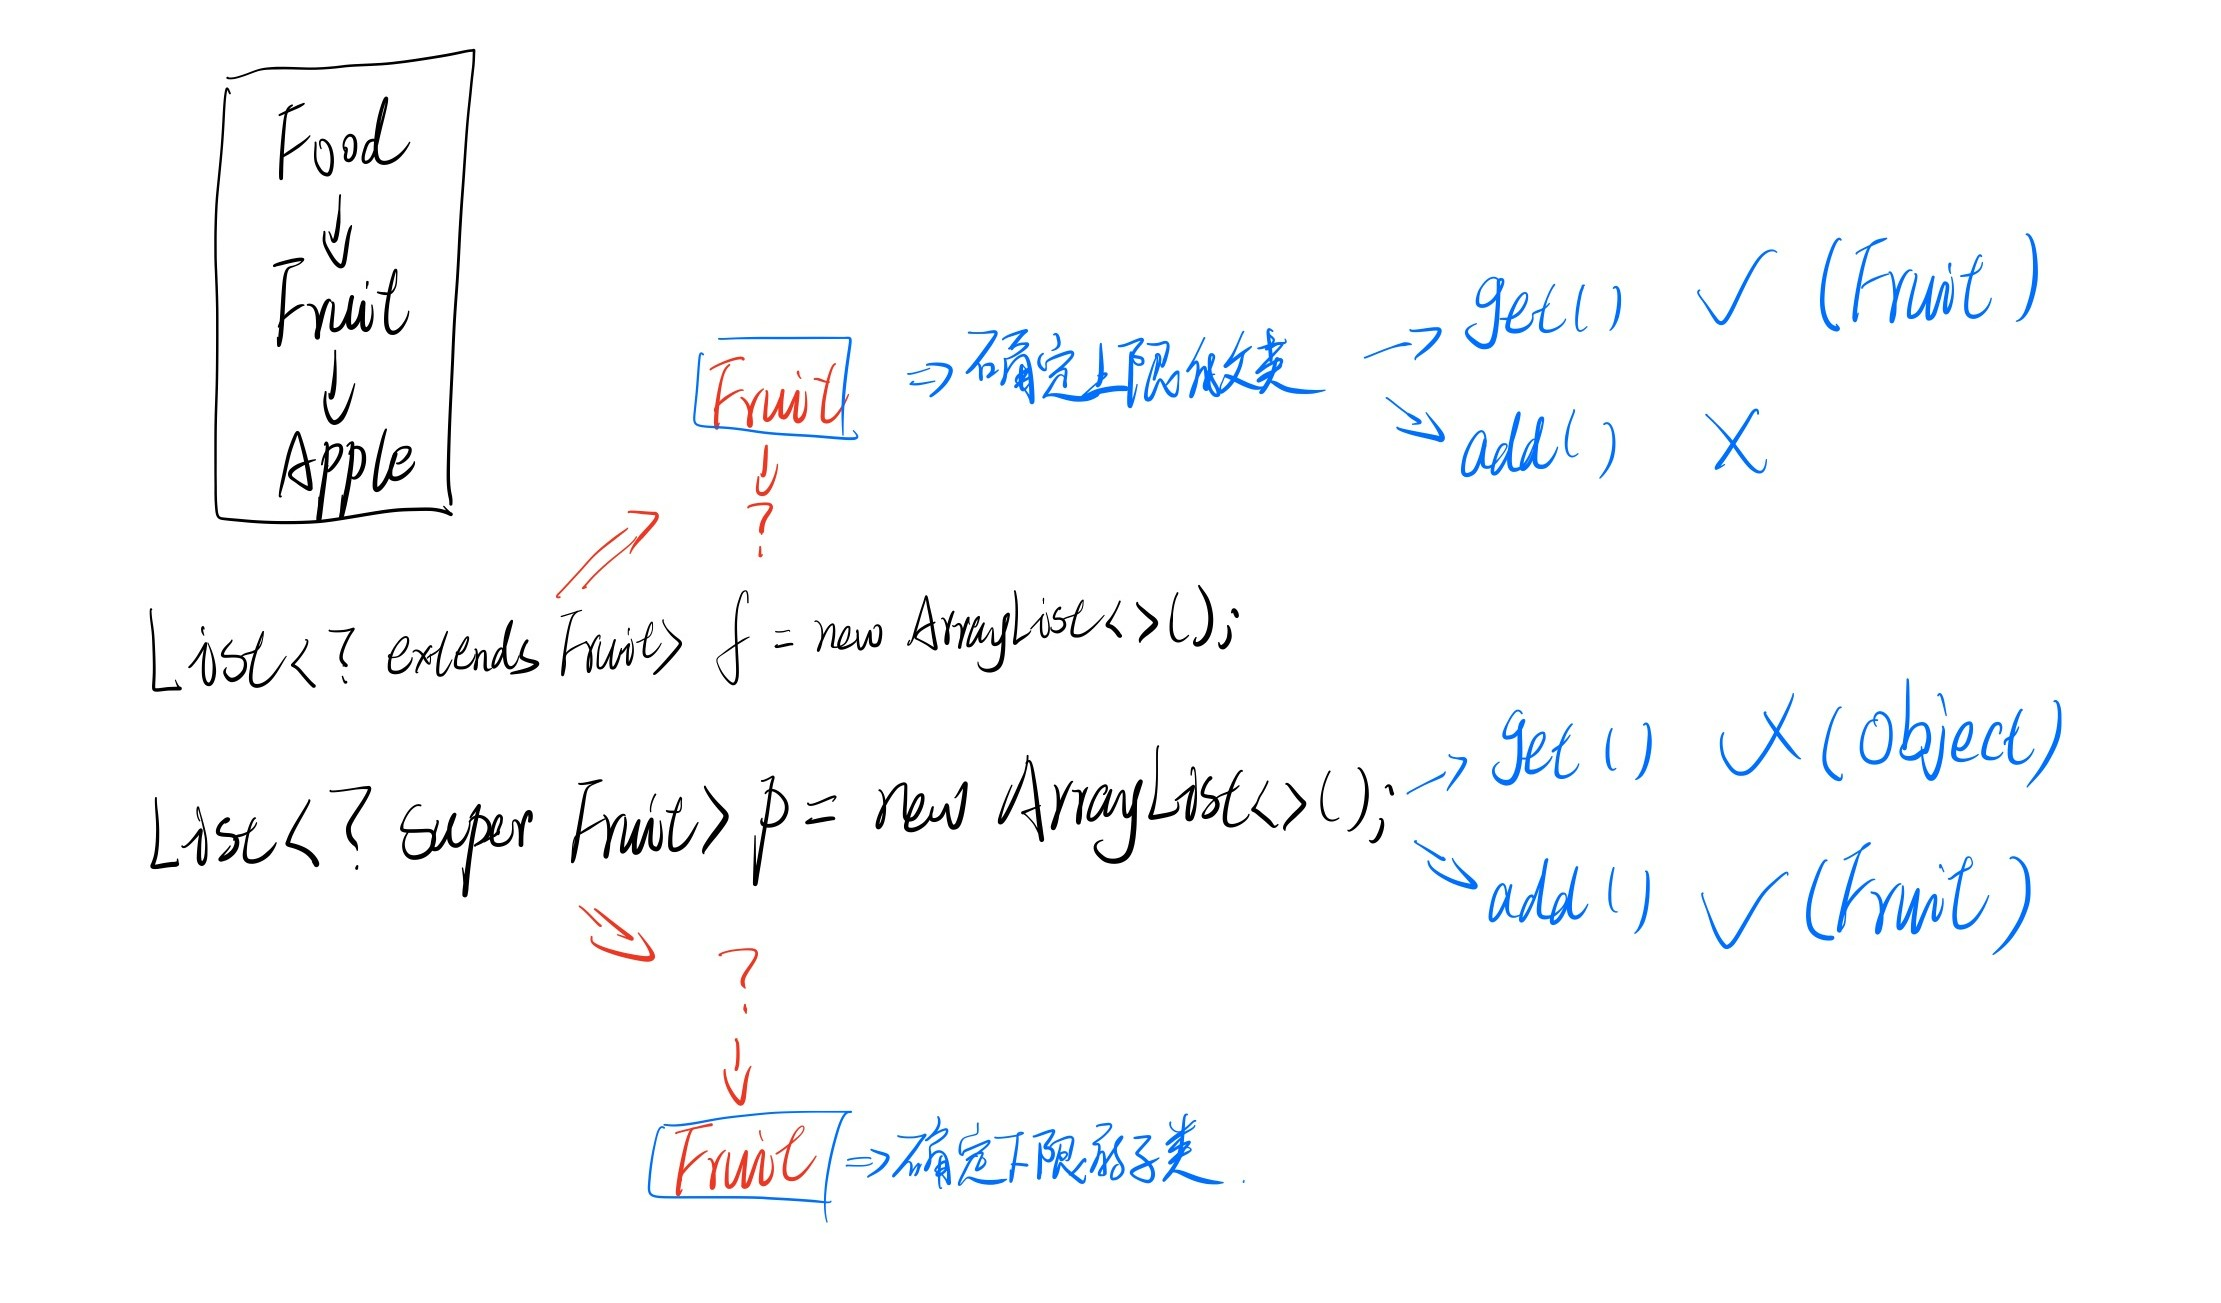 Food
↓
Fruit
↓
Apple
Fruit ⇒ 确定上限的父类
→ get() ✓ (Fruit)
→ add() ✗
↓
?
List<? extends Fruit> f = new ArrayList<>();
List<? super Fruit> p = new ArrayList<>();
→ get() ✓✗ (Object)
→ add() ✓ (Fruit)
?
↓
Fruit ⇒ 确定下限的子类